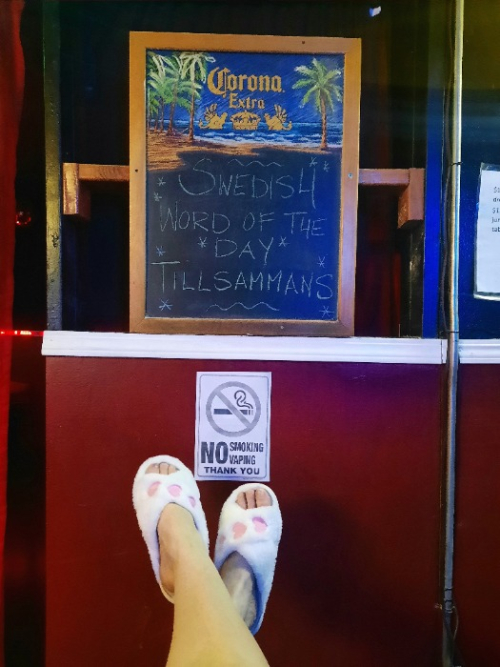 Corona
Extra
SWEDISH
WORD OF THE
*DAY*
TILLSAMMANS
NO SMOKING
VAPING
THANK YOU